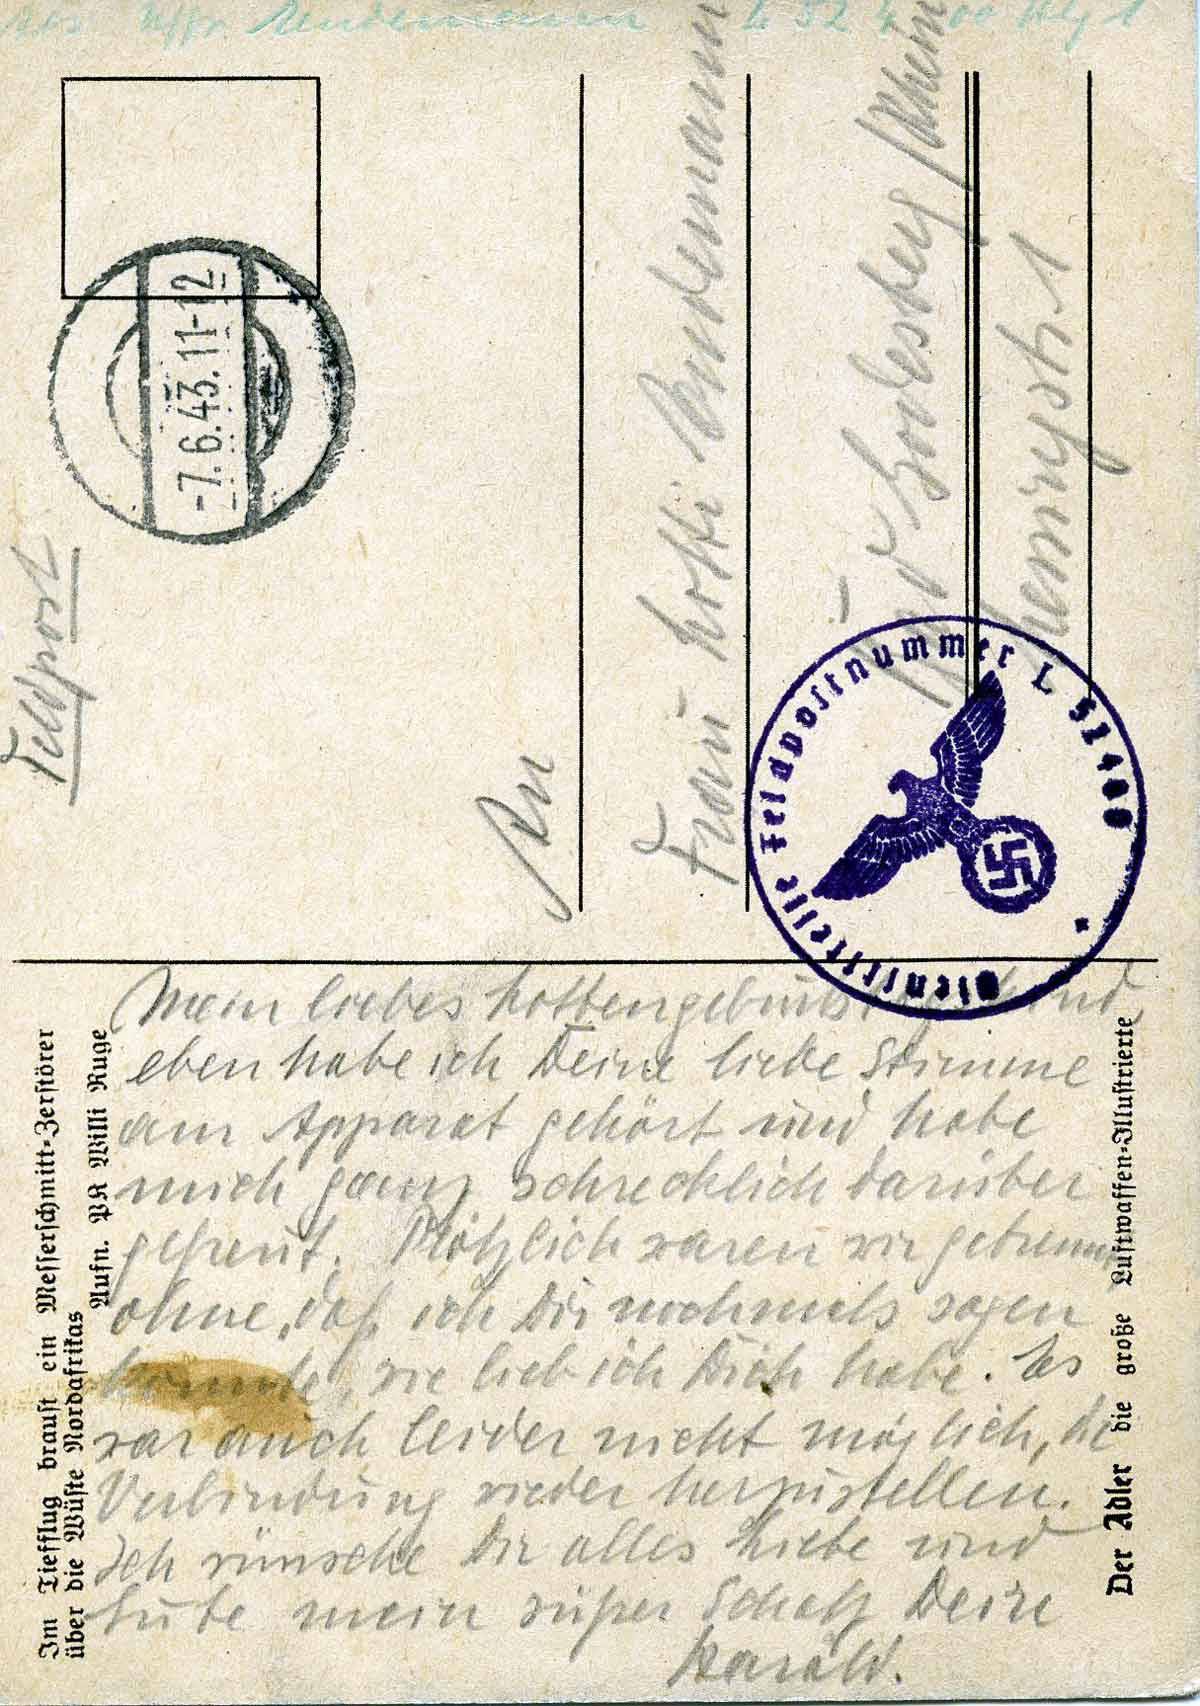 Abs. Uffz. Lendemann L 52 4 00 Lg 1
Feldpost
-7.6.43.11-12
An
Frau Lotti Lendemann
Bad Godesberg/Rhein
Hennrystr. 1
Dienststelle Feldpostnummer L 52400
Mein liebes
eben habe ich Deine liebe Stimme
am Apparat gehört und habe
mich ganz schrecklich darüber
gefreut. Plötzlich waren wir getrennt,
ohne, daß ich Dir nochmals sagen
konnte, wie lieb ich Dich habe. Es
war auch leider nicht möglich, die
Verbindung wieder herzustellen.
Ich wünsche Dir alles Liebe und
Gute mein süßer Schatz Deine
Harald.
Im Tiefflug braust ein Messerschmitt-Zerstörer
über die Wüste Nordafrikas
Aufn. PK Willi Ruge
Der Adler die große Luftwaffen-Illustrierte